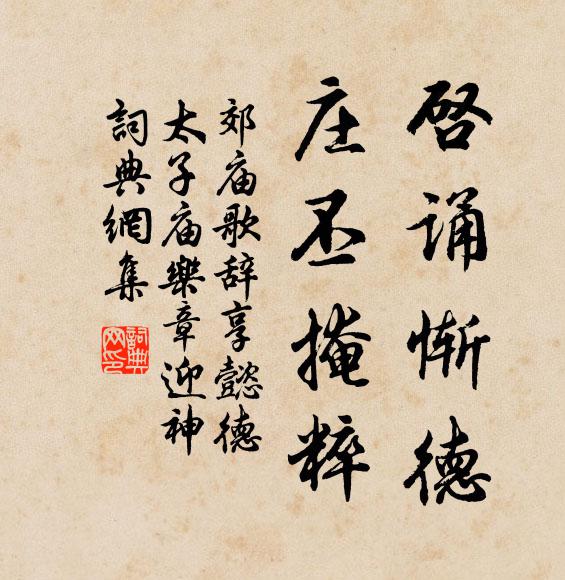 启诵惭德
庄丕掩粹
郊庙歌辞享懿德
太子庙樂章迎神
詞典網集
詞典网印